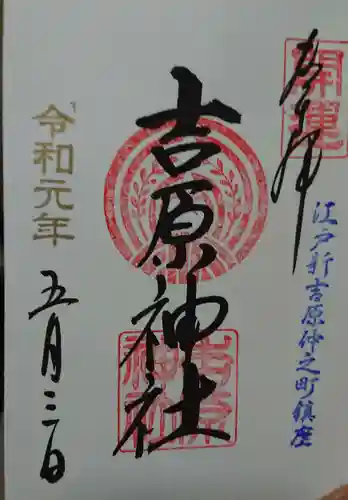 奉拝
開運
江戸新吉原仲之町鎮座
吉原神社
吉原神社
令和元年
五月三日